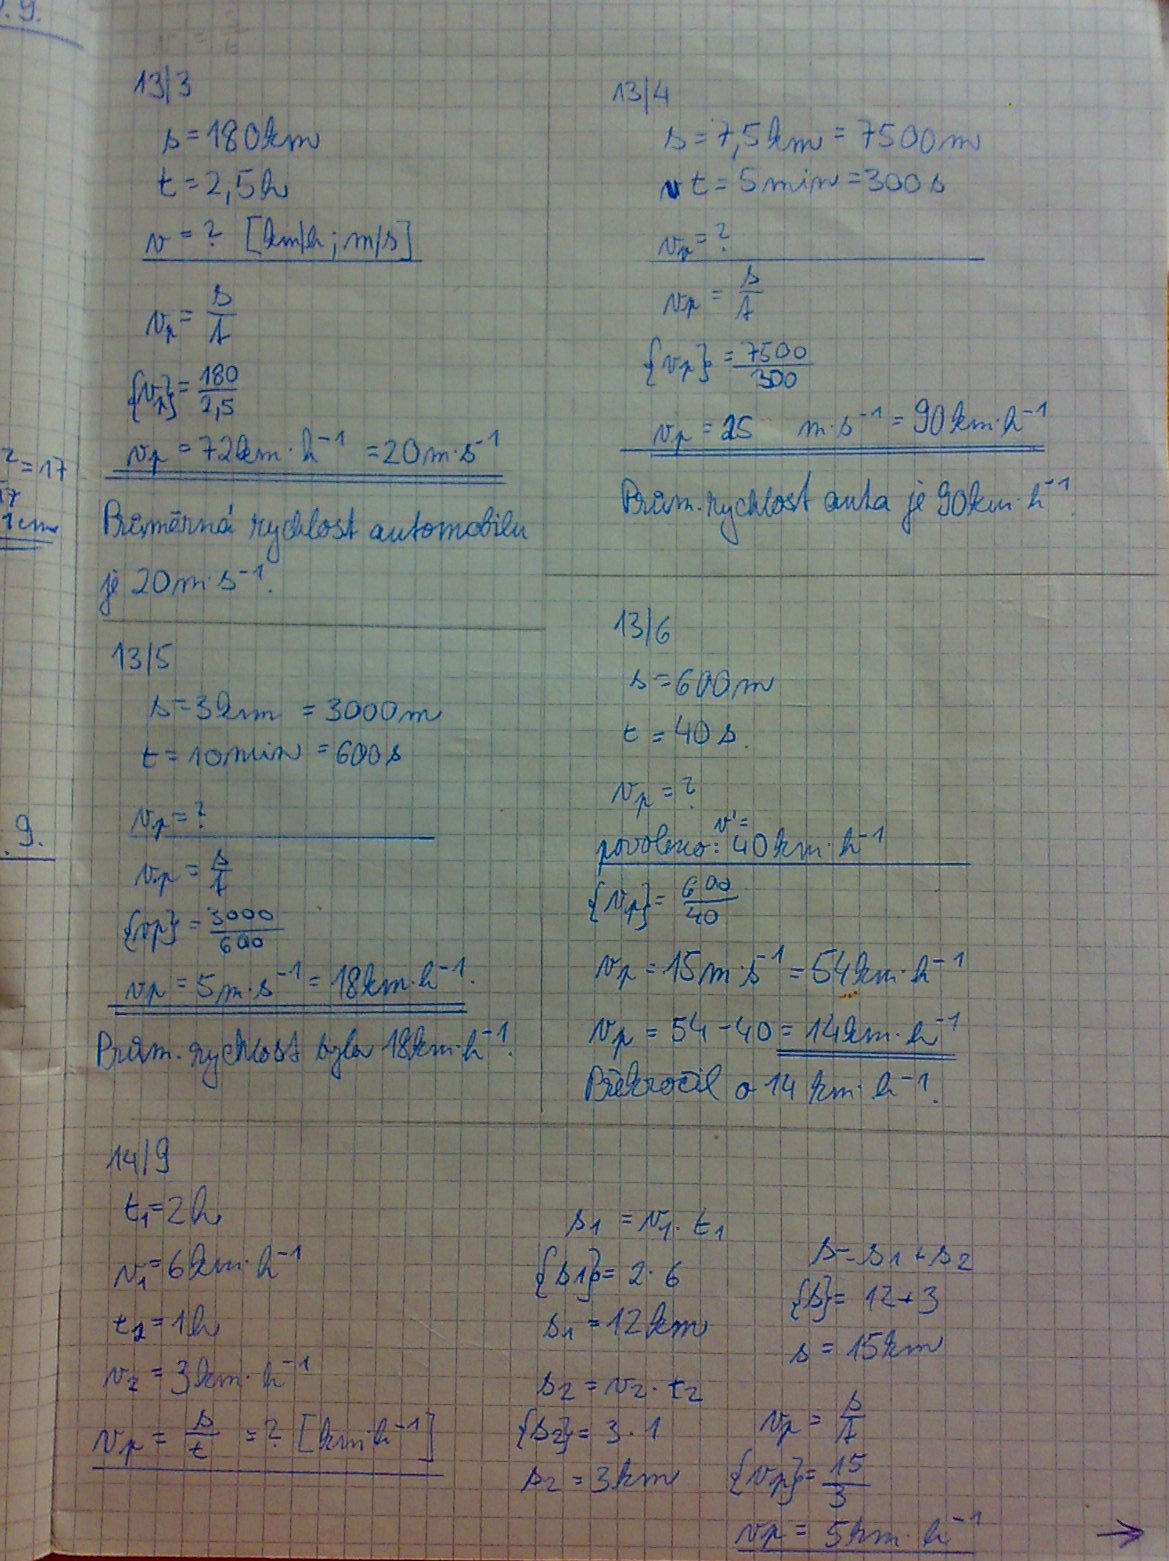 . 9.
13/3
s = 180km
t = 2,5h
v = ? [km/h ; m/s]
vp = s/t
{vp} = 180/2,5
vp = 72km · h⁻¹ = 20m·s⁻¹
Průměrná rychlost automobilu
je 20m·s⁻¹.
13/4
s = 7,5km = 7500m
t = 5min = 300s
vp = ?
vp = s/t
{vp} = 7500/300
vp = 25 m·s⁻¹ = 90km·h⁻¹
Prům. rychlost auta je 90km·h⁻¹.
13/5
s = 3km = 3000m
t = 10min = 600s
vp = ?
vp = s/t
{vp} = 3000/600
vp = 5m·s⁻¹ = 18km·h⁻¹.
Prům. rychlost byla 18km·h⁻¹.
13/6
s = 600m
t = 40s.
vp = ?
v' =
povoleno: 40km·h⁻¹
{vp} = 600/40
vp = 15m·s⁻¹ = 54km·h⁻¹
vp = 54 - 40 = 14km·h⁻¹
Překročil o 14 km·h⁻¹.
14/9
t₁ = 2h
v₁ = 6km·h⁻¹
t₂ = 1h
v₂ = 3km·h⁻¹
vp = s/t = ? [km·h⁻¹]
s₁ = v₁ · t₁
{s₁} = 2 · 6
s₁ = 12km
s₂ = v₂ · t₂
{s₂} = 3 · 1
s₂ = 3km
s = s₁ + s₂
{s} = 12 + 3
s = 15km
vp = s/t
{vp} = 15/3
vp = 5km·h⁻¹
→
² = 17
17
1cm
9.